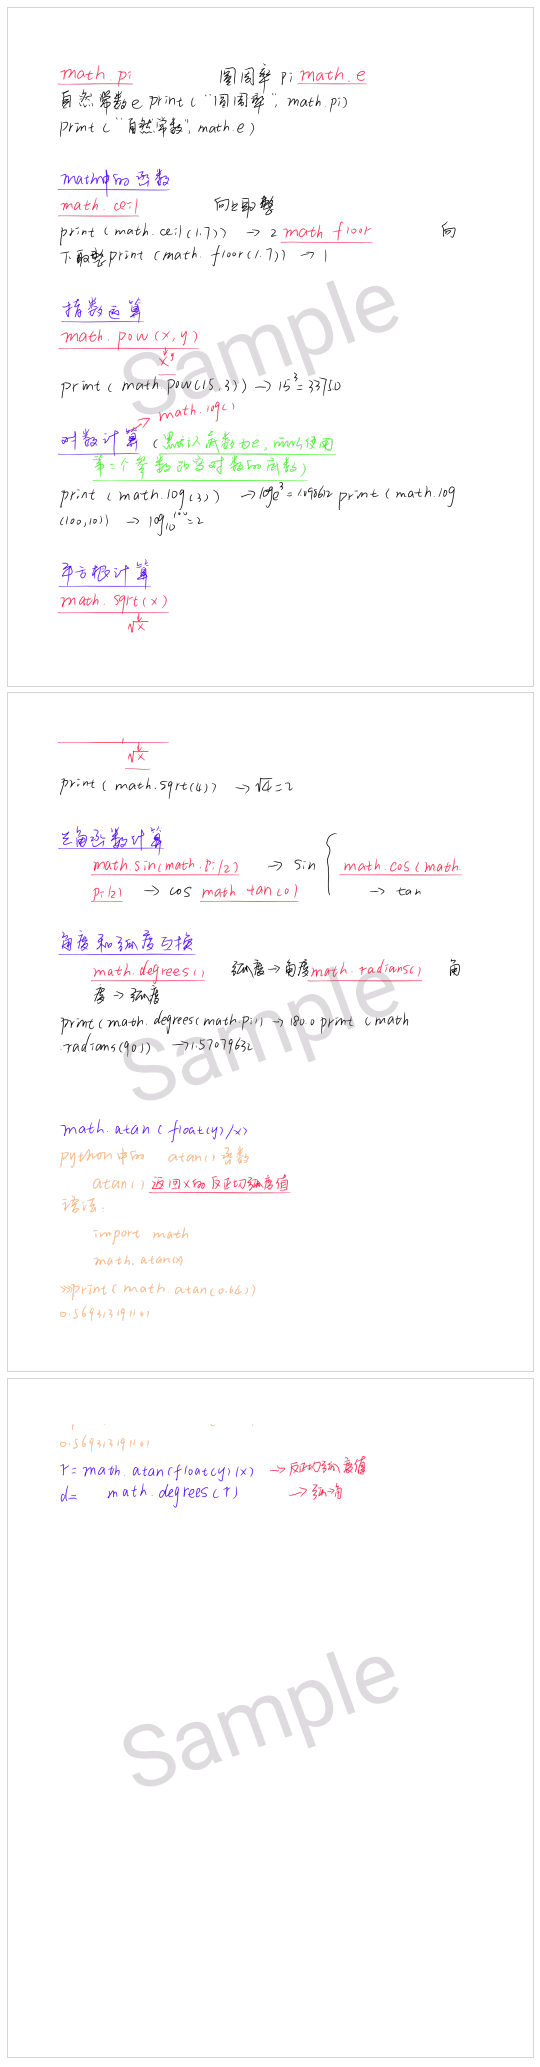 math.pi 圆周率 pi math.e
自然常数e print("圆周率", math.pi)
print("自然常数", math.e)
math中的函数
math.ceil 向上取整
print(math.ceil(1.7)) → 2 math floor 向
下取整print(math.floor(1.7)) → 1
指数运算
math.pow(x,y)
x^y
print(math.pow(15,3)) → 15^3=33750
math.log()
对数计算(默认底数为e,可以使用
第二个参数改变对数的底数)
print(math.log(3)) → loge^3=1.098612 print(math.log
(100,10)) → log10^100=2
平方根计算
math.sqrt(x)
√x
Sample
√x
print(math.sqrt(4)) → √4=2
三角函数计算
math.sin(math.pi/2) → sin { math.cos(math.
pi/2) → cos math.tan(0) → tan
角度和弧度互换
math.degrees() 弧度→角度math.radians() 角
度→弧度
print(math.degrees(math.pi)) → 180.0 print(math
.radians(90)) → 1.57079632
Sample
math.atan(float(y)/x)
python中的 atan()函数
atan()返回x的反正切弧度值
语法:
import math
math.atan(x)
>>>print(math.atan(0.64))
0.569313191101
0.569313191101
r=math.atan(float(y)/x) →反正切弧度值
d= math.degrees(r) →弧→角
Sample